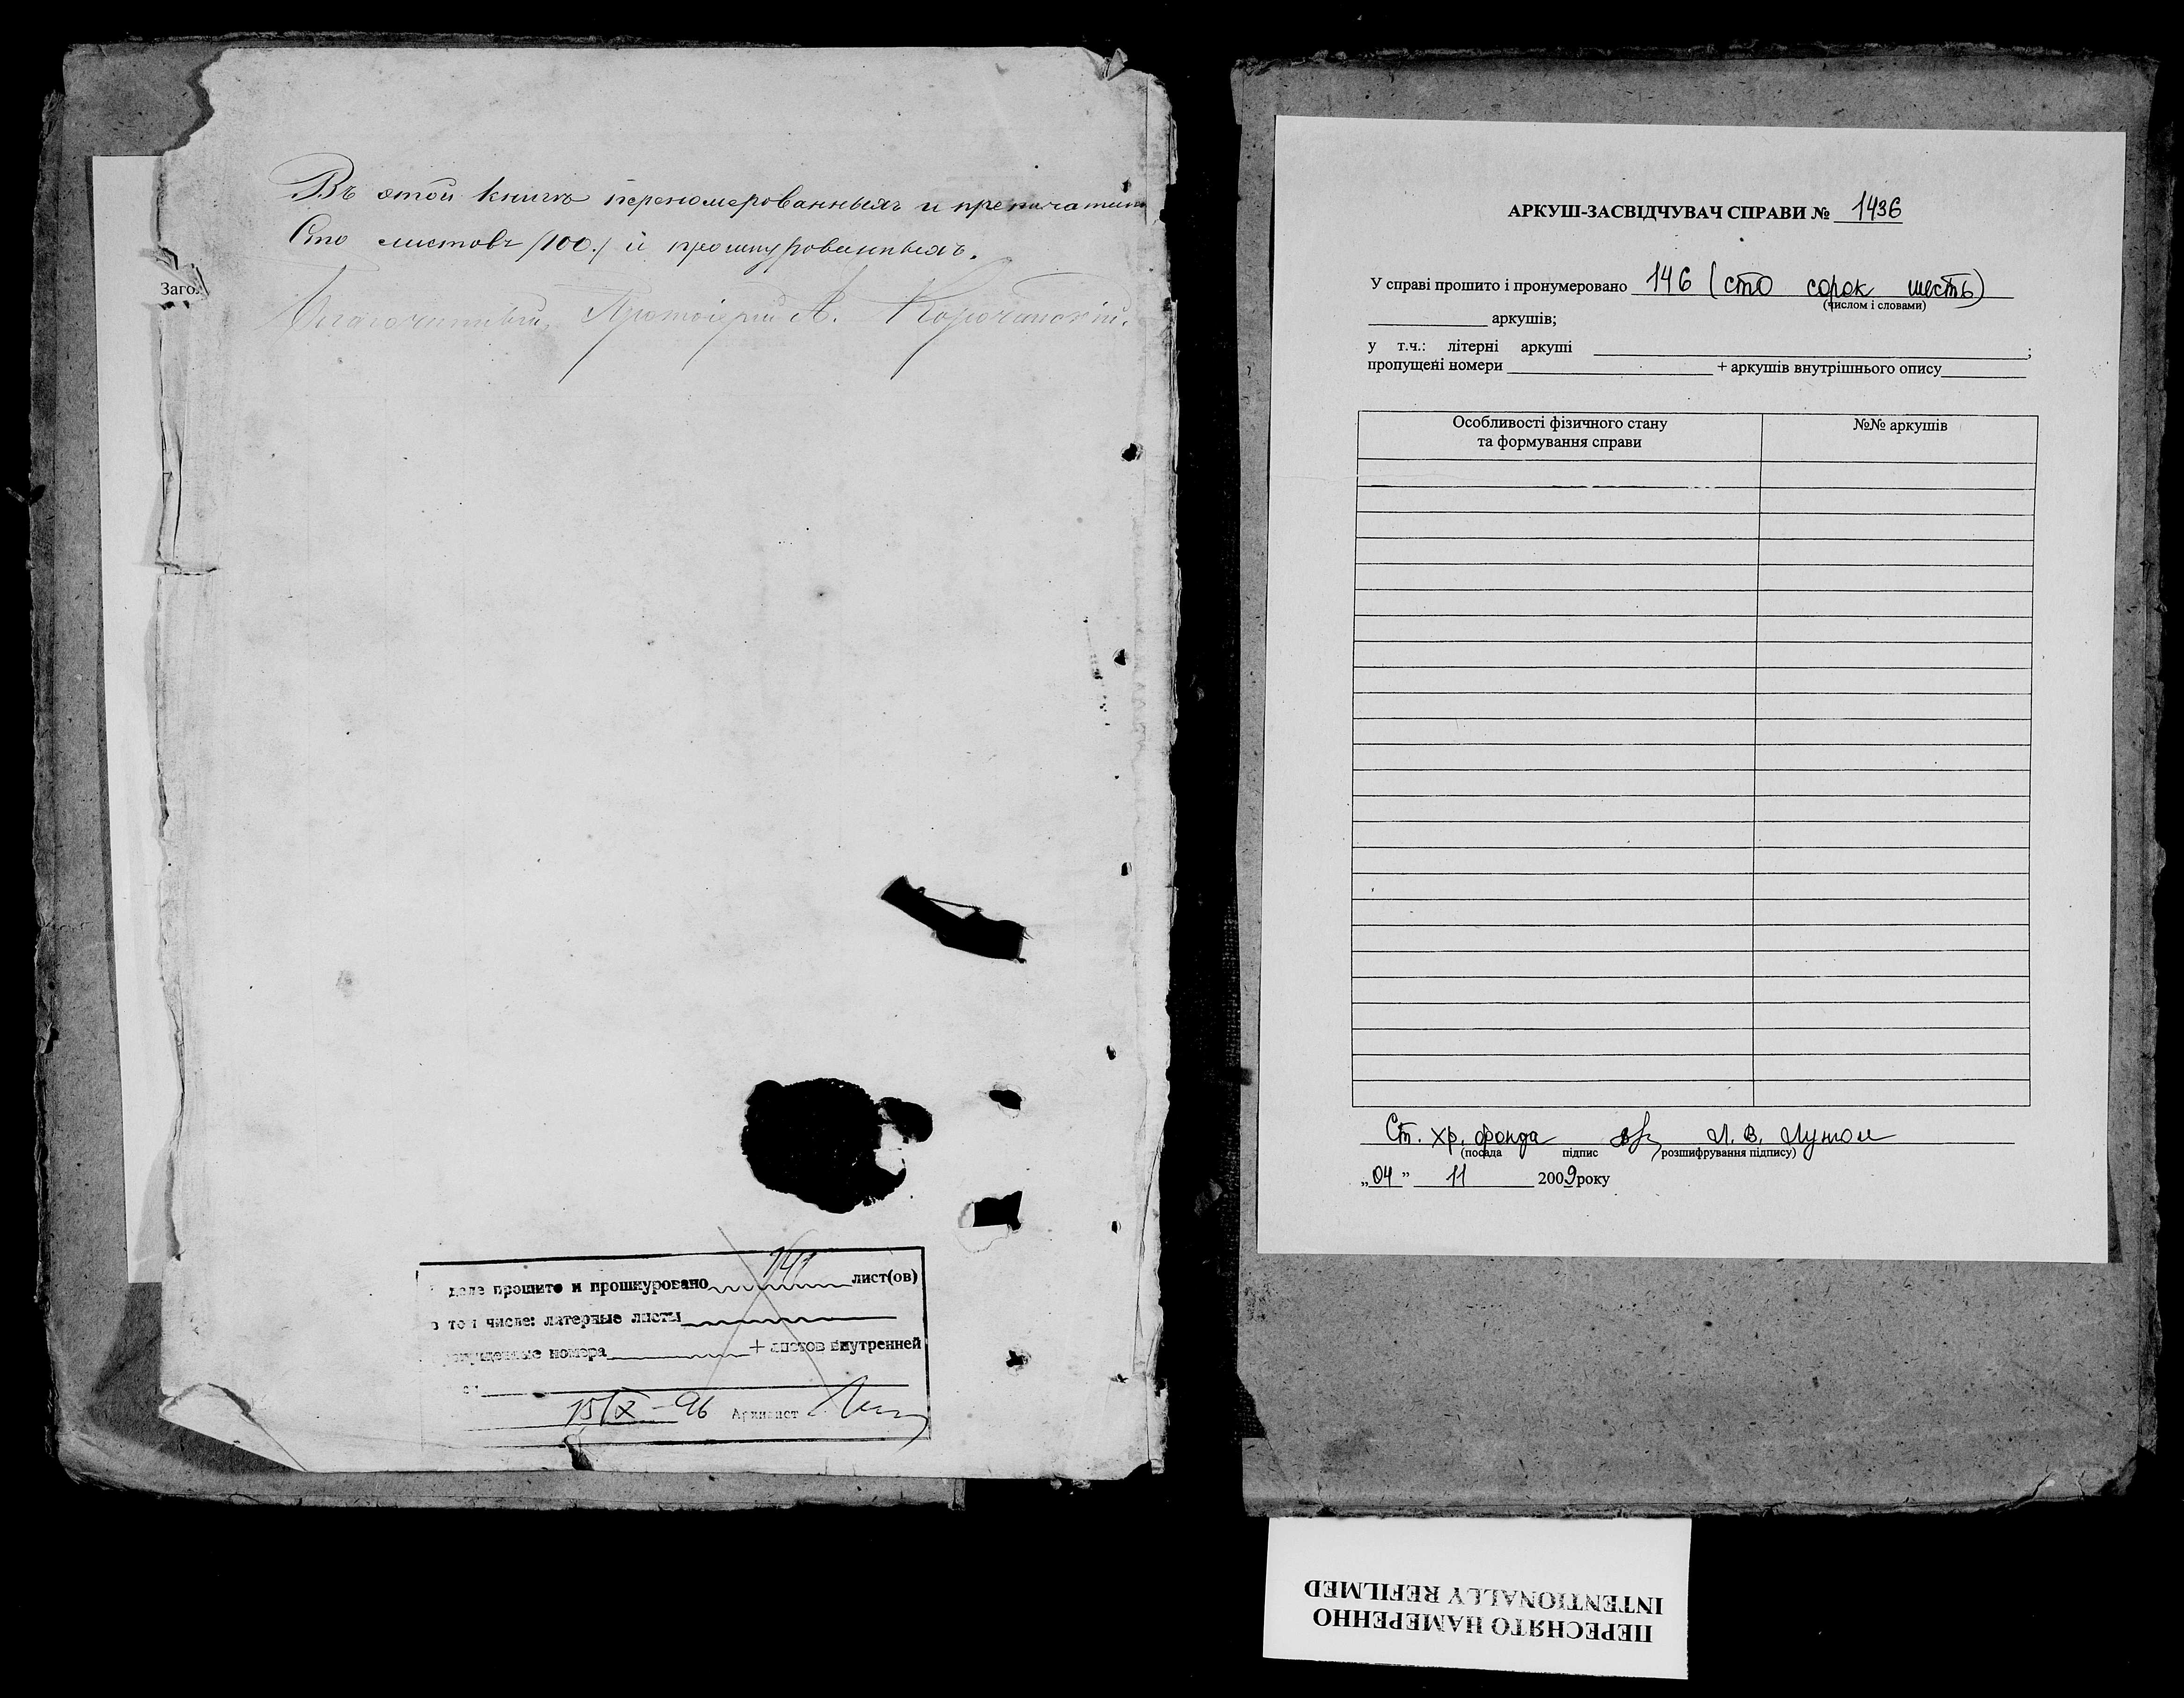 Въ этой книгѣ перенумерованныхъ и
Сто листовъ /100./ и прошнурованныхъ.
Благочинный, Протоіерей А.
Загол
деле прошито и прошнуровано 141 лист(ов)
в том числе: литерные листы
номера + листов внутренней
15/X-96 Архивист
АРКУШ-ЗАСВІДЧУВАЧ СПРАВИ № 1436
У справі прошито і пронумеровано 146 (сто сорок шесть)
(числом і словами)
аркушів;
у т.ч.: літерні аркуші ;
пропущені номери + аркушів внутрішнього опису
Особливості фізичного стану
та формування справи
№№ аркушів
Ст. хр. фонда Л. В.
(посада підпис розшифрування підпису)
„04” 11 2009 року
ПЕРЕСНЯТО НАМЕРЕННО
INTENTIONALLY REFILMED